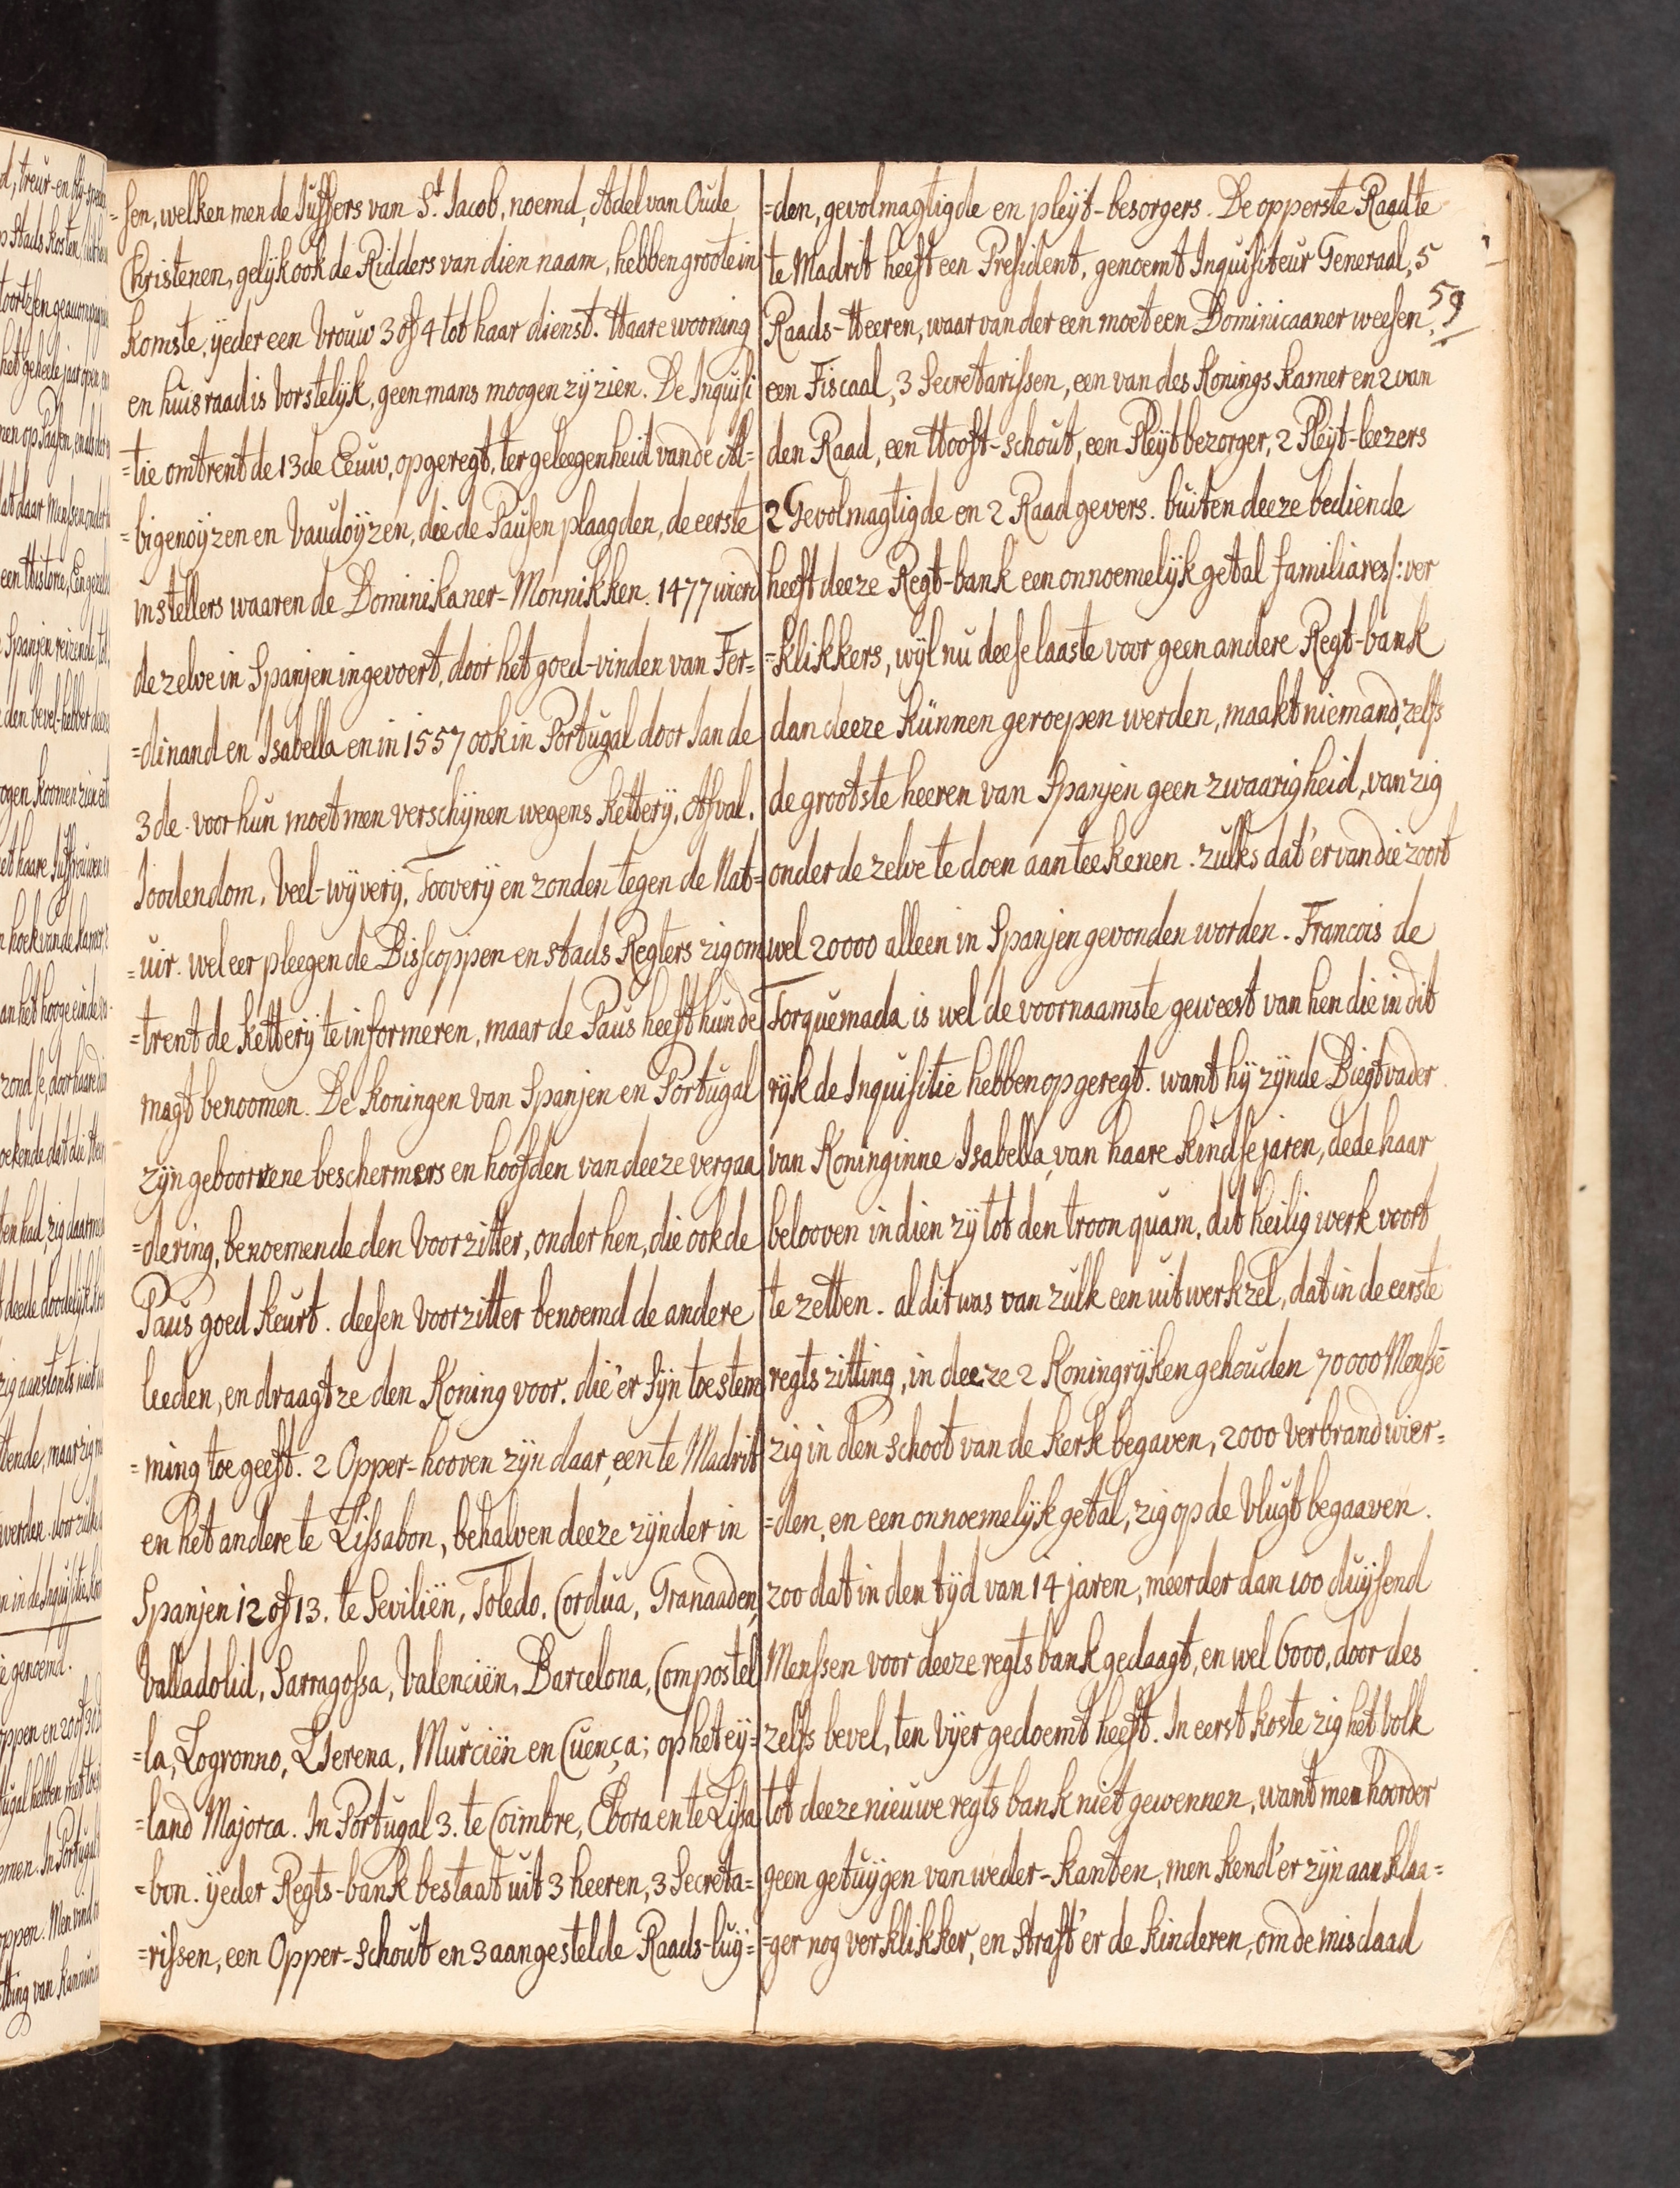 =sen, welken men de Juffers van St. Jacob, noemd, Adel van Oude
Christenen, gelijk ook de Ridders van dien naam, hebben groote in
komste, yeder een Vrouw 3 of 4 tot haar dienst. Haare wooning
en huisraad is Vorstelyk, geen mans moogen zy zien. De Inquisi
=tie omtrent de 13de Eeuw, opgeregt, ter geleegenheid van de Al=
=bigenoijzen en Vaudoijzen, die de Pausen plaagden, de eerste
instellers waaren de Dominikaner-Monnikken. 1477 wierd
de zelve in Spanjen ingevoert, door het goed-vinden van Fer=
=dinand en Isabella en in 1557 ook in Portugal door Jan de
3de. voor hun moet men verschijnen wegens kettery, Afval,
Joodendom, Veel-wyvery, Toovery en zonden tegen de Nat=
=uir. wel eer pleegen de Bisscoppen en stads Regters zig om
=trent de kettery te informeren, maar de Paus heeft hun de
magt benoomen. De koningen van Spanjen en Portugal
zyn geboorene beschermers en hoofden van deeze vergaa
=dering, benoemende den Voorzitter, onder hen, die ook de
Paus goed keurt. deesen Voorzitter benoemd de andere
leeden, en draagt ze den Koning voor. die 'er syn toestem
=ming toe geeft. 2 Opper-hooven zyn daar, een te Madrit
en het andere te Lissabon, behalven deeze zynder in
Spanjen 12 of 13. te Seviliën, Toledo, Cordua, Granaaden,
Valladolid, Sarragossa, Valenciën, Barcelona, Compostel
=la, Logronno, Llerena, Murciën en Cuença; op het ey=
=land Majorca. In Portugal 3. te Coimbre, Ebora en te Lissa
=bon. ijeder Regts-bank bestaat uit 3 heeren, 3 Secreta=
=rissen, een Opper-schout en 3 aangestelde Raads-luy=
=den, gevolmagtigde en pleyt-besorgers. De opperste Raad te
te Madrit heeft een President, genoemt Inquisiteur Generaal, 5
Raads-Heeren, waar van der een moet een Dominicaaner weesen,
59
een Fiscaal, 3 Secretarissen, een van des Konings Kamer en 2 van
den Raad, een Hooft-schout, een Pleytbezorger, 2 Pleyt-leezers
2 Gevolmagtigde en 2 Raad gevers. buiten deeze bediende
heeft deeze Regt-bank een onnoemelyk getal familiares/: ver
=klikkers, wyl nu deese laaste voor geen andere Regt-bank
dan deeze künnen geroepen werden, maakt niemand, zelfs
de grootste heeren van Spanjen geen zwaarigheid, van zig
onder de zelve te doen aanteekenen. zulks dat 'er van die zoort
wel 20000 alleen in Spanjen gevonden worden. Francois de
Torquemada is wel de voornaamste geweest van hen die in dit
ryk de Inquisitie hebben opgeregt. want hy zynde Biegtvader
van Koninginne Isabella, van haare kindse jaren, dede haar
belooven indien zy tot den troon quam, dit heilig werk voort
te zetten. al dit was van zulk een uitwerkzel, dat in de eerste
regts zitting, in deeze 2 Koningryken gehouden 70000 Menssē
zig in den schoot van de Kerk begaven, 2000 verbrand wier=
=den, en een onnoemelyk getal, zig op de Vlugt begaaven.
zoo dat in den tijd van 14 jaren, meerder dan 100 duysend
Menssen voor deeze regts bank gedaagt, en wel 6000, door des
zelfs bevel, ten Vyer gedoemt heeft. In eerst koste zig het volk
tot deeze nieuwe regts bank niet gewennen, want men hoorder
geen getuygen van weder-kanten, men kend'er zyn aan klaa=
=ger nog verklikker, en straft 'er de kinderen, om de misdaad